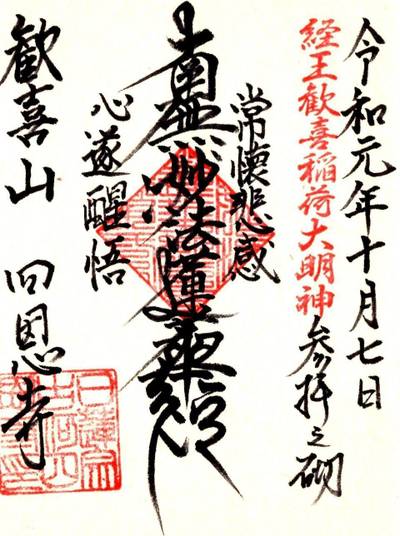 令和元年十月七日
経王歓喜稲荷大明神
参拝之砌
常懐悲感
南無妙法蓮華経
心遂醒悟
歓喜山 回恩寺